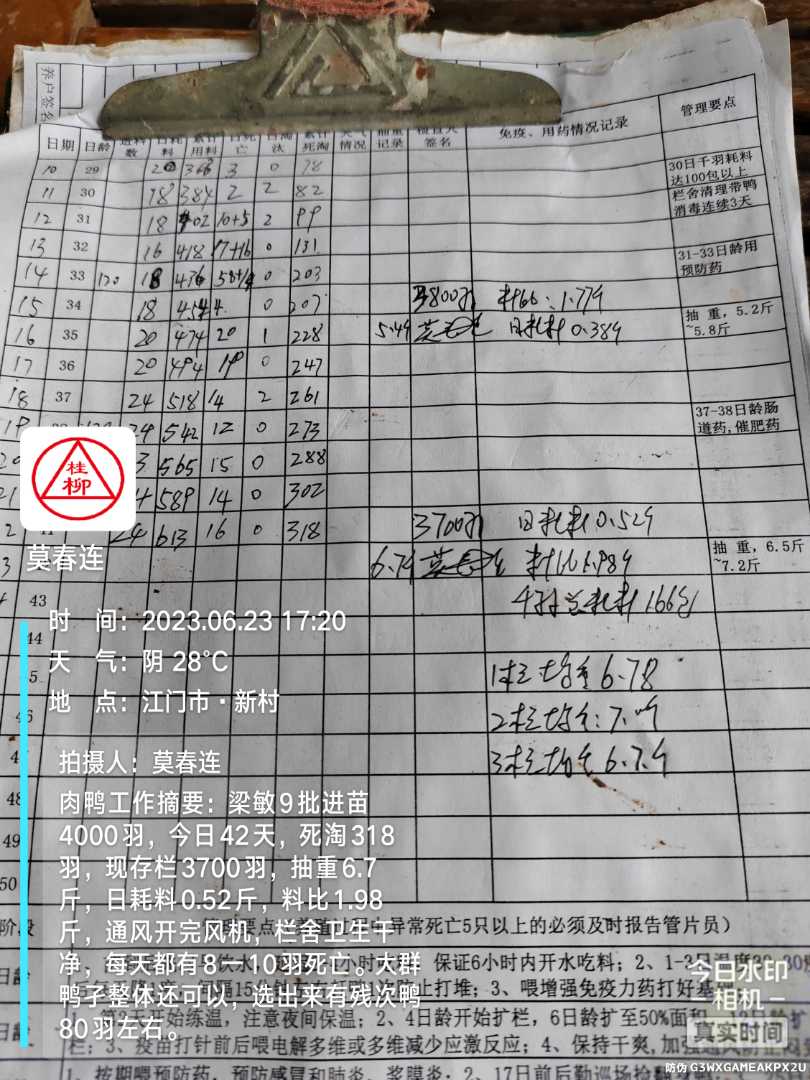 养户签名
日期 日龄 进料数 日耗料 累计用料 日死亡 日淘汰 累计死淘 天气情况 抽重记录 检查人签名 免疫、用药情况记录 管理要点
10 29 366 3 0 78 30日千羽耗料达100包以上
11 30 18 384 2 2 82 栏舍清理带鸭消毒连续3天
12 31 18 402 10+5 2 99
13 32 16 418 17+16 0 131 31-33日龄用预防药
14 33 120 18 436 203
15 34 18 454 4 0 207 3800羽 料比:1.77斤
16 35 20 474 20 1 228 5.4斤 日耗料0.38斤 抽重,5.2斤~5.8斤
17 36 20 494 19 0 247
18 37 24 518 14 2 261 37-38日龄肠道药,催肥药
19 24 542 12 0 273
565 15 0 288
589 14 0 302
24 613 16 0 318 3700羽 日耗料0.52斤
6.7斤 料比1.98斤 抽重,6.5斤~7.2斤
43 总耗料166包
44
1栏均重6.78
2栏均重:7.
3栏均重6.7斤
48
49
50
桂柳
莫春连
时 间:2023.06.23 17:20
天 气:阴 28℃
地 点:江门市·新村
拍摄人:莫春连
肉鸭工作摘要:梁敏9批进苗
4000羽,今日42天,死淘318
羽,现存栏3700羽,抽重6.7
斤,日耗料0.52斤,料比1.98
斤,通风开完风机,栏舍卫生干
净,每天都有8一10羽死亡。大群
鸭子整体还可以,选出来有残次鸭
80羽左右。
阶段 异常死亡5只以上的必须及时报告管片员)
日龄 保证6小时内开水吃料;2、1-3日温度
止打堆;3、喂增强免疫力药打好基础
日龄 开始练温,注意夜间保温;2、4日龄开始扩栏,6日龄扩至50%面积
栏;3、疫苗打针前后喂电解多维或多维减少应激反应;4、保持干爽,加强通风
1、按期喂预防药,预防感冒和肺炎、浆膜炎;2、17日前后勤巡场检
今日水印
相机
真实时间
防伪 G3WXGAMEAKPX2U